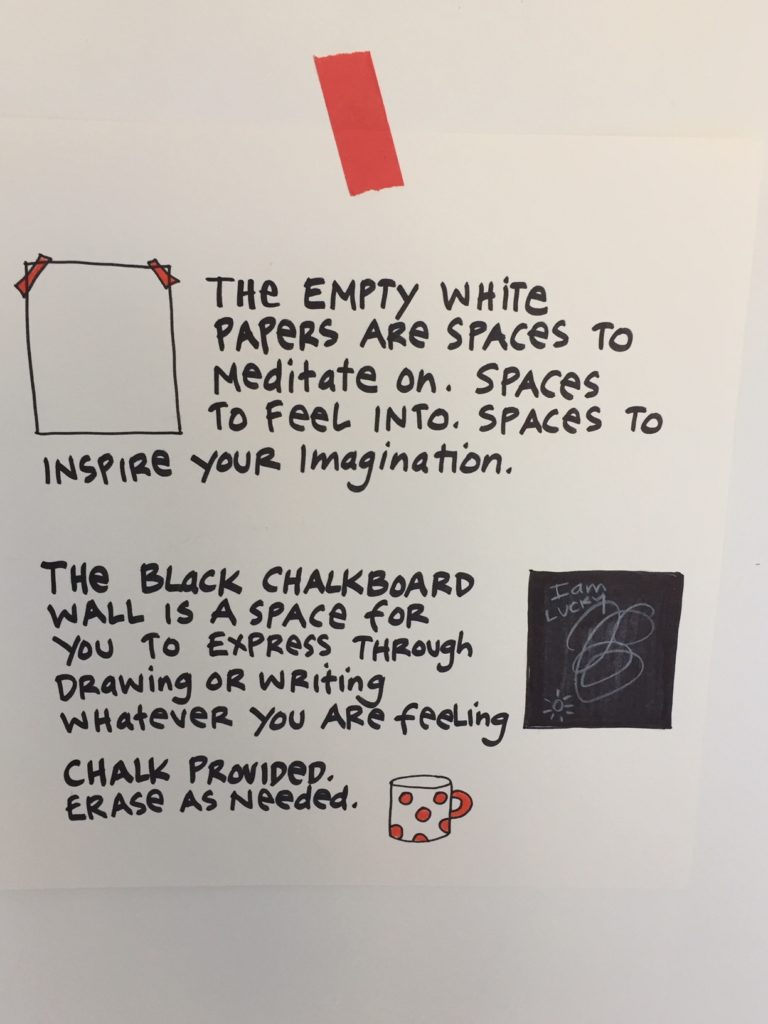 THe EMPTY WHiTe
PAPeRS ARe SPACeS TO
MeditaTe on. SPACeS
TO FeeL INTO. SPACeS TO
INSPIRe YOUR Imagination.
THe BLaCK CHALKBOARD
WALL IS A SPACe foR
YOU TO EXPRESS THROUgh
DRAWing OR WRiTiNg
WHaTeVeR YOU ARe feeLiNg
I am
LUCKY
CHALK PROVIDeD.
ERASe AS NeeDeD.